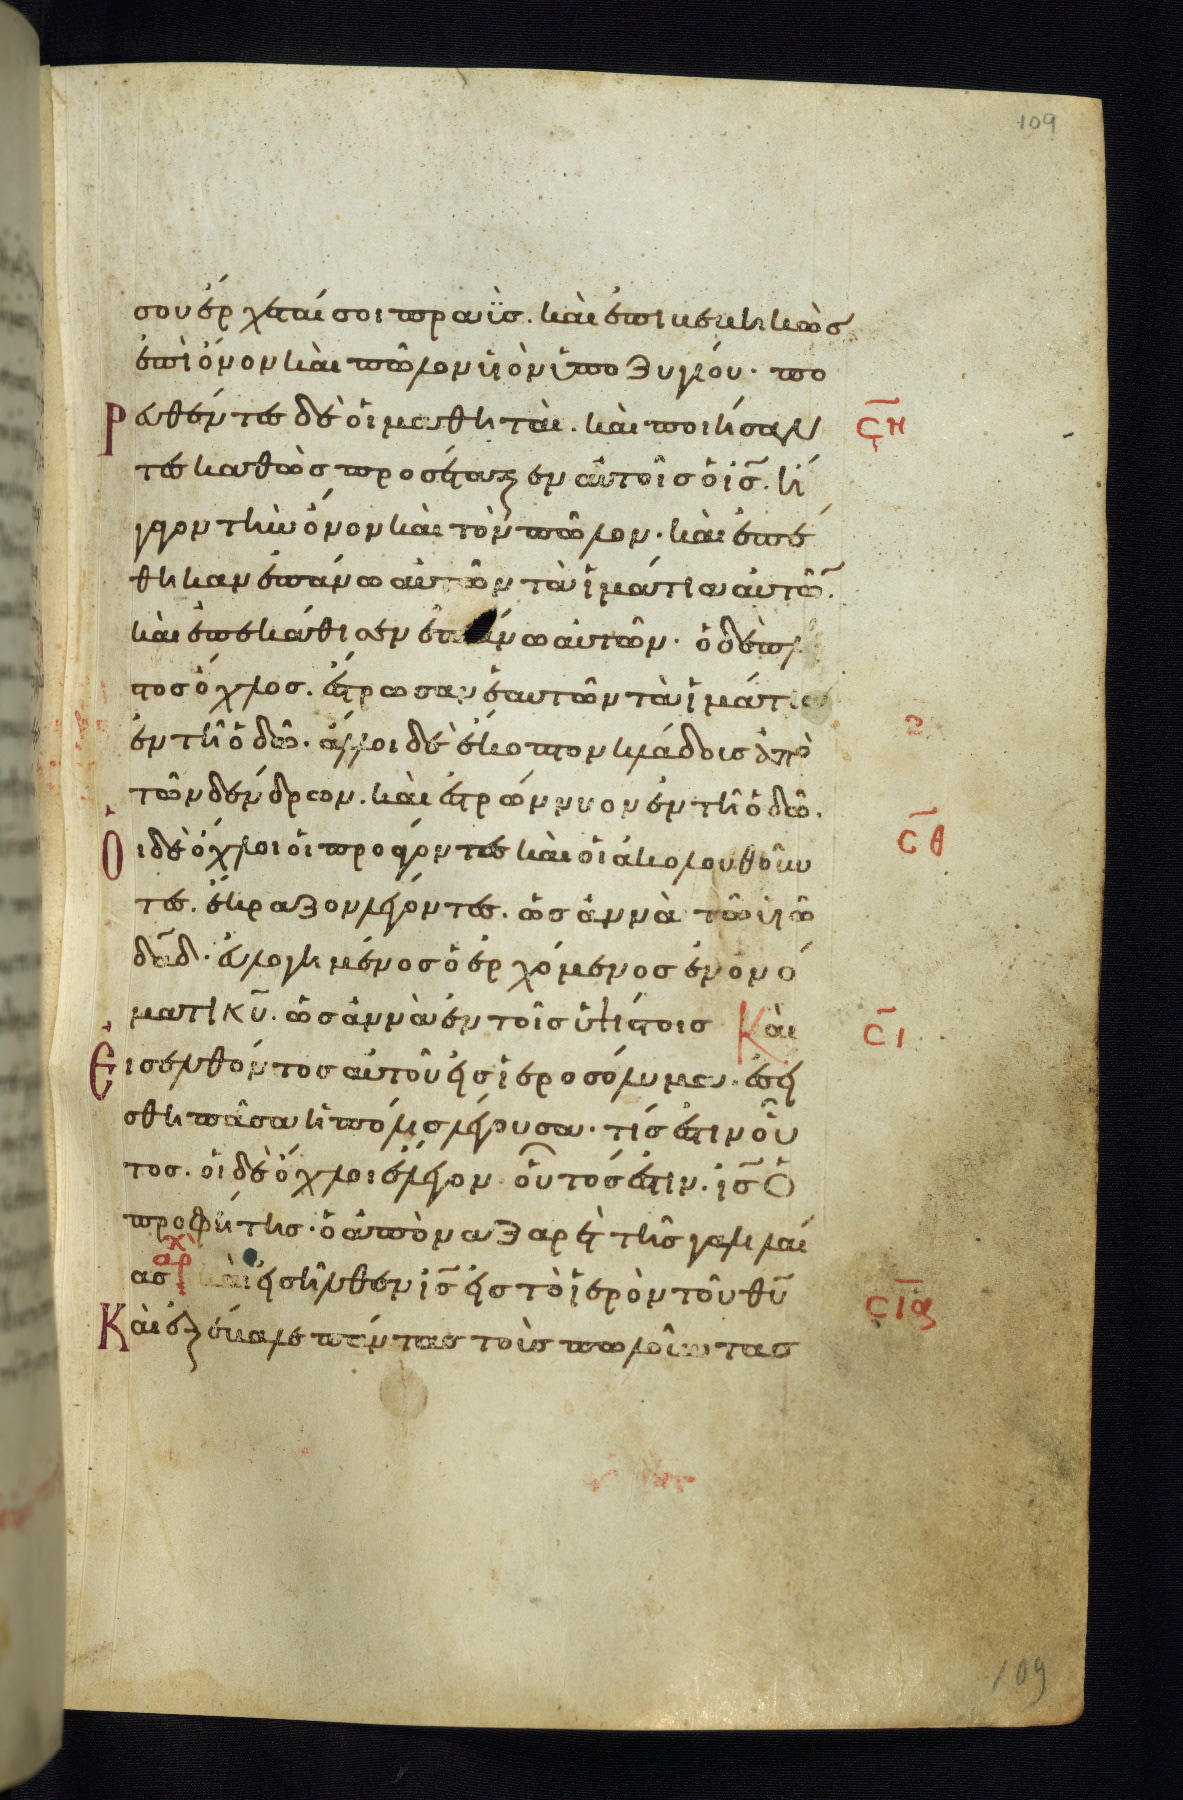 109
σου ἔρχεταί σοι πραΰς. καὶ ἐπιβεβηκὼς
ἐπὶ ὄνον καὶ πῶλον υἱὸν ὑποζυγίου. πο
Ρευθέντες δὲ οἱ μαθηταὶ. καὶ ποιήσαν ϛη
τες καθὼς προσέταξεν αὐτοῖς ὁ ις. ἤ
γαγον τὴν ὄνον καὶ τὸν πῶλον. καὶ ἐπέ
θηκαν ἐπάνω αὐτῶν τὰ ἱμάτια αὐτῶ̅.
καὶ ἐπεκάθισεν ἐπάνω αὐτῶν. ὁ δὲ πλεῖ
στος ὄχλος. ἔστρωσαν ἑαυτῶν τὰ ἱμάτια
ἐν τῇ ὁδῶ. ἄλλοι δὲ ἔκοπτον κλάδοις ἀπὸ
τῶν δένδρων. καὶ ἐστρώννυον ἐν τῇ ὁδῶ.
Ὁι δὲ ὄχλοι οἱ προάγοντες καὶ οἱ ἀκολουθοῦν ϛθ
τες. ἔκραζον λέγοντες. ὡσαννὰ τῶ υἱῶ
δαδ. εὐλογημένος ὁ ἐρχόμενος ἐν ὀνό
ματι κυ. ὡσαννὰ ἐν τοῖς ὑψίστοις Καὶ ϛι
Ἐισελθόντος αὐτοῦ εἰς ἱεροσόλυμα. ἐσεί
σθη πᾶσα ἡ πόλις λέγουσα. τίς ἐστιν οὗ
τος. οἱ δὲ ὄχλοι ἔλεγον. οὗτός ἐστιν. ις ὁ
προφήτης. ὁ ἀπὸ ναζαρὲτ τῆς γαλιλαί
ας αρχ καὶ εἰσῆλθεν ις εἰς τὸ ἱερὸν τοῦ θυ ϛια
Καὶ ἐξέβαλε πάντας τοὺς πωλοῦντας
109